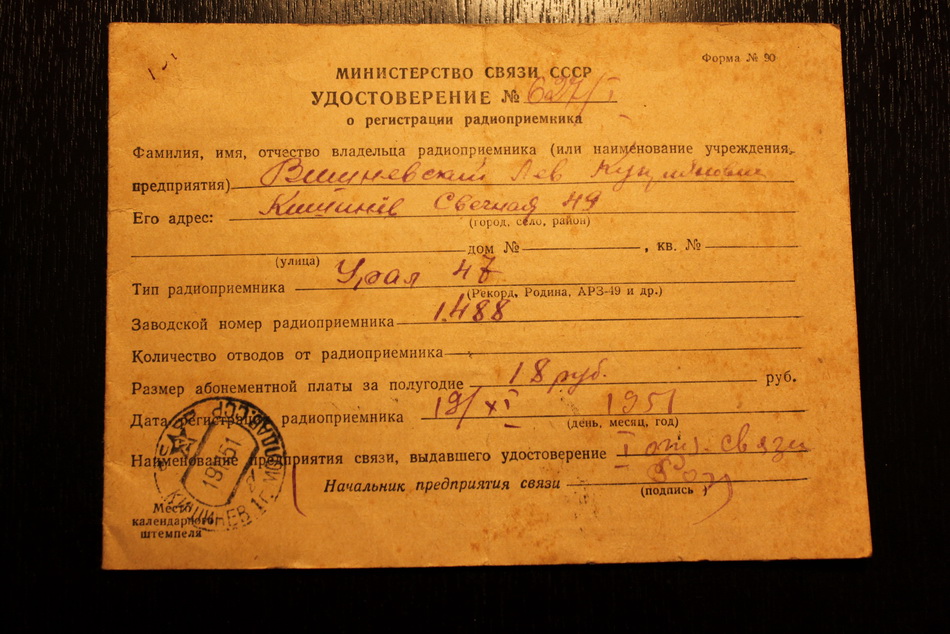 Форма № 90
МИНИСТЕРСТВО СВЯЗИ СССР
УДОСТОВЕРЕНИЕ № 627/I
о регистрации радиоприемника
Фамилия, имя, отчество владельца радиоприемника (или наименование учреждения,
предприятия) Вишневский Лев
Его адрес: Кишинёв Свечная 49
(город, село, район)
дом № , кв. №
(улица)
Тип радиоприемника Урал 47
(Рекорд, Родина, АРЗ-49 и др.)
Заводской номер радиоприемника 1488
Количество отводов от радиоприемника
Размер абонементной платы за полугодие 18 руб. руб.
Дата регистрации радиоприемника 19/XI 1951
(день, месяц, год)
Наименование предприятия связи, выдавшего удостоверение I отд. связи
Начальник предприятия связи
(подпись)
Место
календарного
штемпеля
КИШИНЕВ 1 МОЛДАВ.ССР